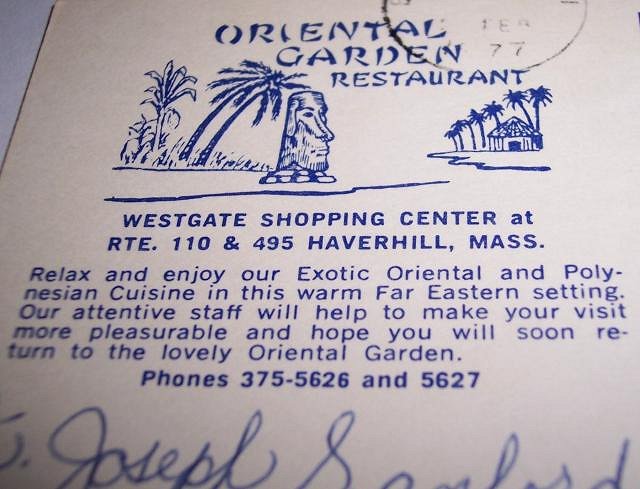 ORIENTAL
GARDEN
RESTAURANT
FEB
77
WESTGATE SHOPPING CENTER at
RTE. 110 & 495 HAVERHILL, MASS.
Relax and enjoy our Exotic Oriental and Poly-
nesian Cuisine in this warm Far Eastern setting.
Our attentive staff will help to make your visit
more pleasurable and hope you will soon re-
turn to the lovely Oriental Garden.
Phones 375-5626 and 5627
Joseph Sanford